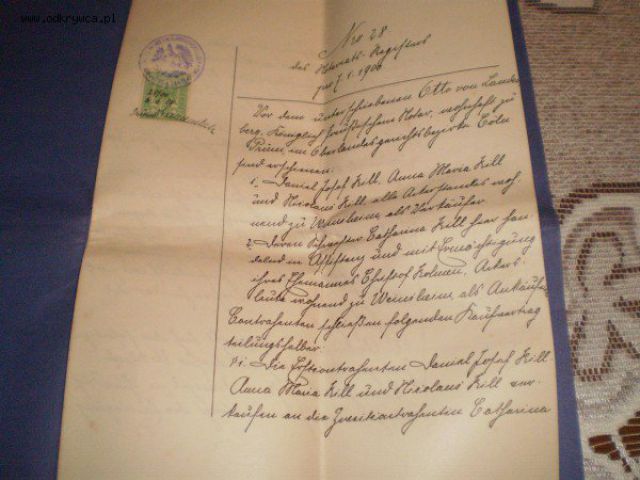 www.odkrywca.pl
Nro 28
des Notariats-Registers
pro 7.1.1900
Vor dem unterschriebenen Otto von Lands-
berg, Königlich Preußischen Notar, wohnhaft zu
Prüm, im Oberlandesgerichtsbezirke Cöln
sind erschienen:
1., Daniel Josef Kill, Anna Maria Kill
und Nicolaus Kill, alle Ackerstandes woh-
nend zu Weinsheim als Verkäufer
2., Deren Schwester Catharina Kill hier han-
delnd in Assistenz und mit Ermächtigung
ihres Ehemannes Christof Kolmen, Ackers-
leute wohnend zu Weinsheim, als Ankäufer
Contrahenten schließen folgenden Kaufvertrag
teilungshalber:
§1. Die Erstcontrahenten Daniel Josef Kill
Anna Maria Kill und Nicolaus Kill ver-
kaufen an die Zweitcontrahentin Catharina